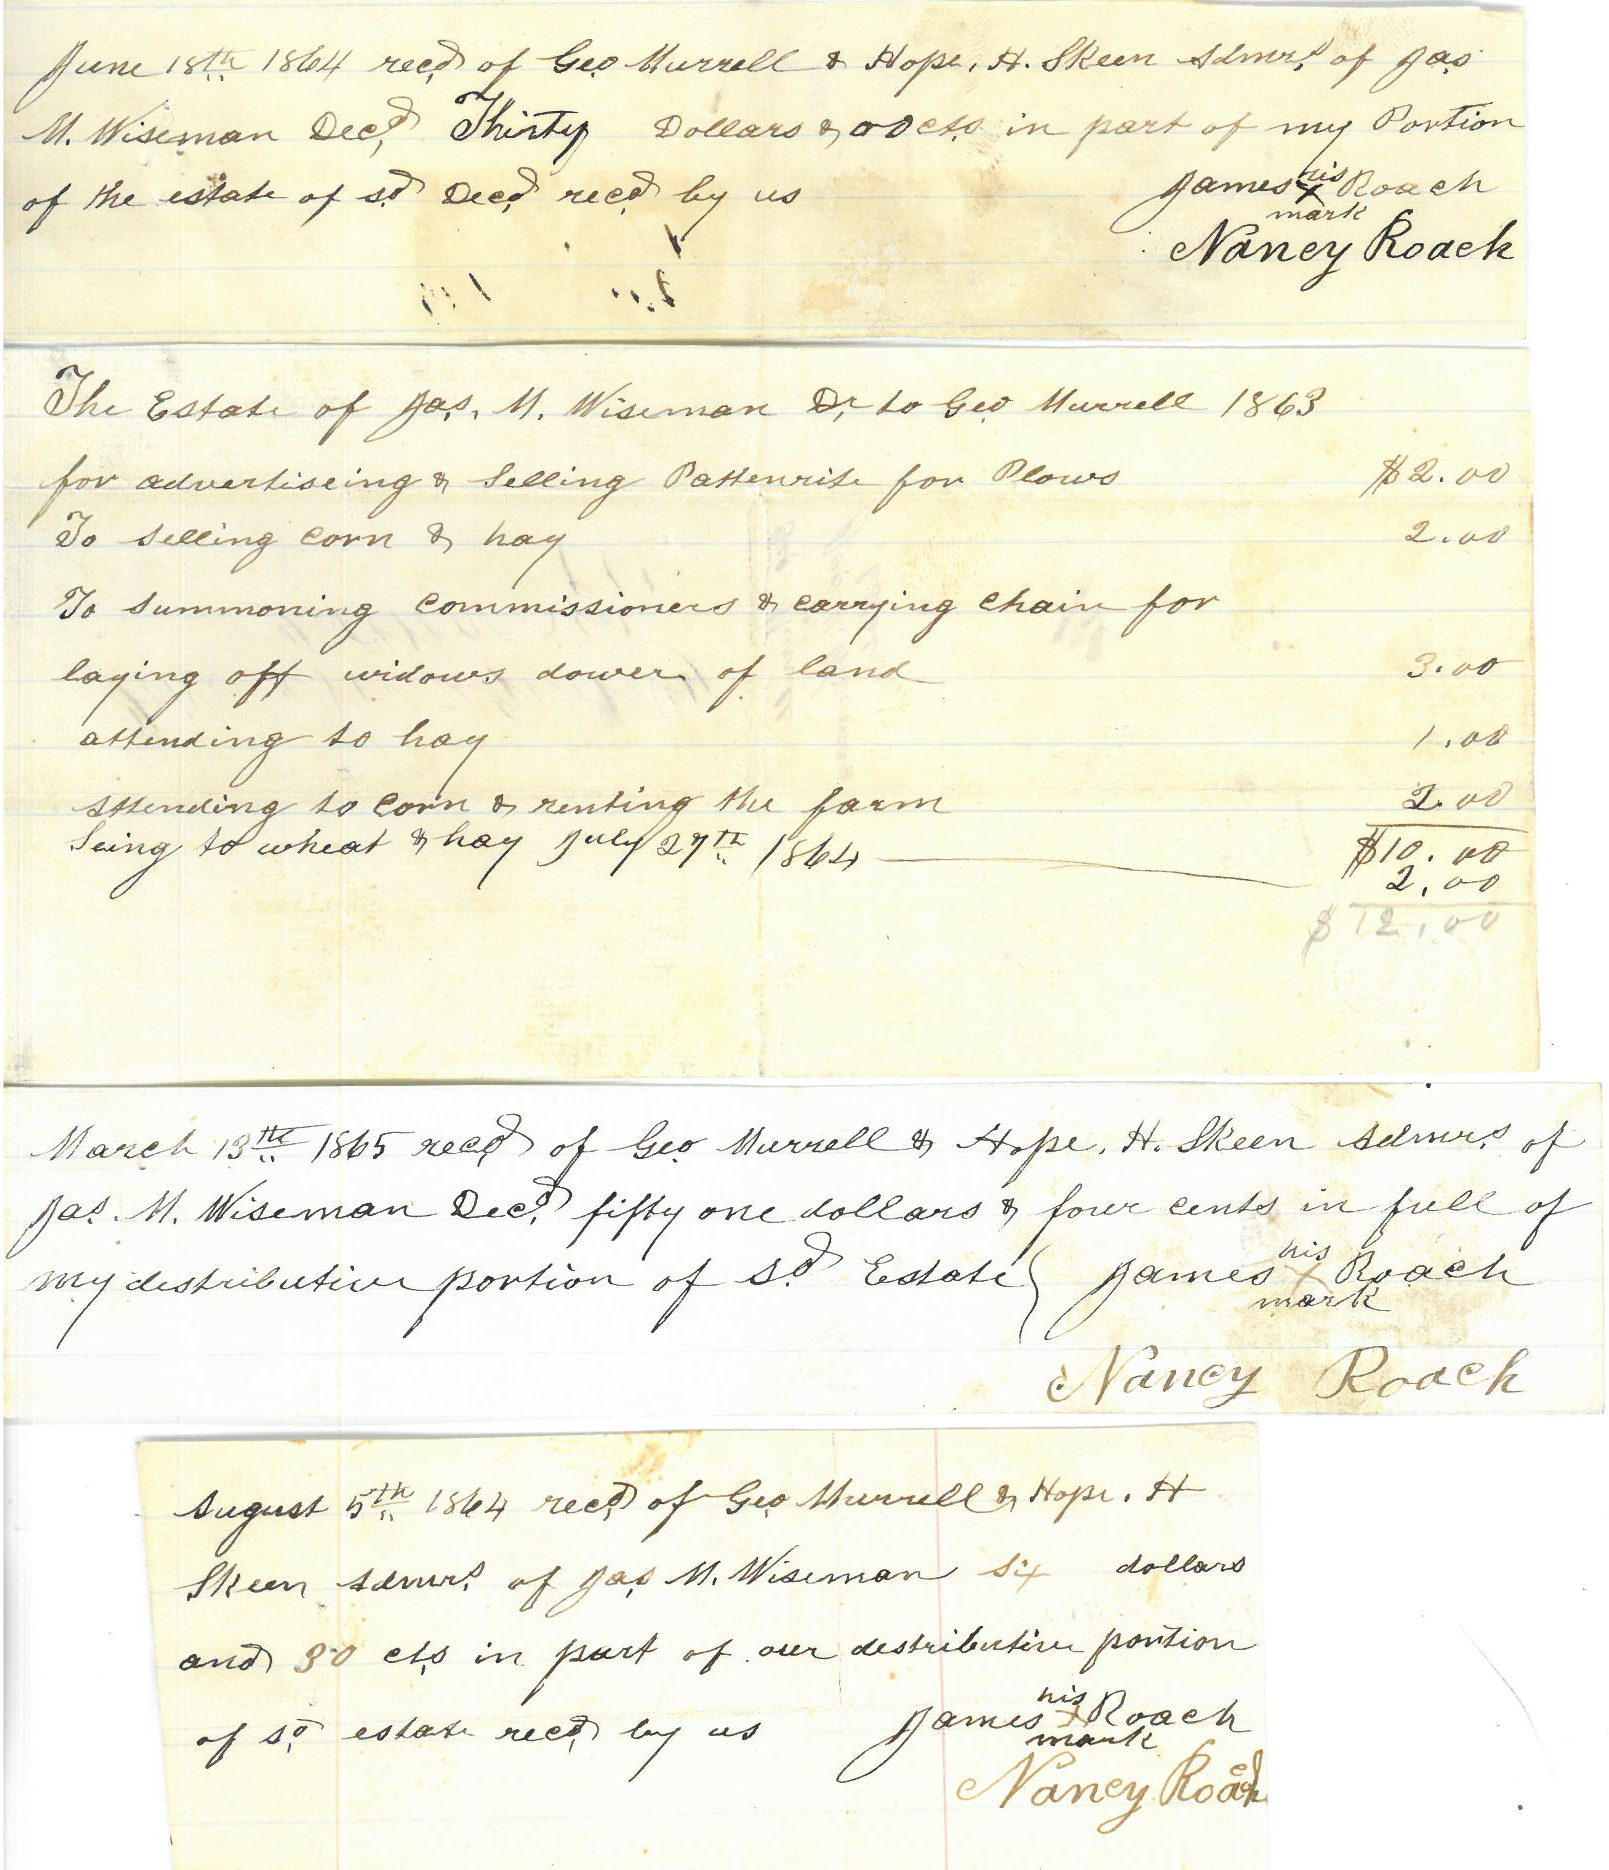 June 18th 1864 recd of Geo Murrell & Hope. H. Skeen Admrs of Jas
M. Wiseman Decd Thirty Dollars & 00 cts in part of my Portion
of the estate of sd Decd recd by us James his x mark Roach
Nancy Roach
The Estate of Jas. M. Wiseman Dr to Geo Murrell 1863
for advertiseing & Selling Pattenrite for Plows $2.00
To selling corn & hay 2.00
To summoning commissioners & carrying chain for
laying off widows dower of land 3.00
attending to hay 1.00
attending to corn & renting the farm 2.00
Seing to wheat & hay July 27th 1864 $10.00
2.00
$12.00
March 13th 1865 recd of Geo Murrell & Hope. H. Skeen Admrs of
Jas. M. Wiseman Decd fifty one dollars & four cents in full of
my distributive portion of sd Estate} James his x mark Roach
Nancy Roach
August 5th 1864 recd of Geo Murrell & Hope. H
Skeen Admrs of Jas M. Wiseman six dollars
and 30 cts in part of our distributive portion
of sd estate recd by us James his x mark Roach
Nancy Roach